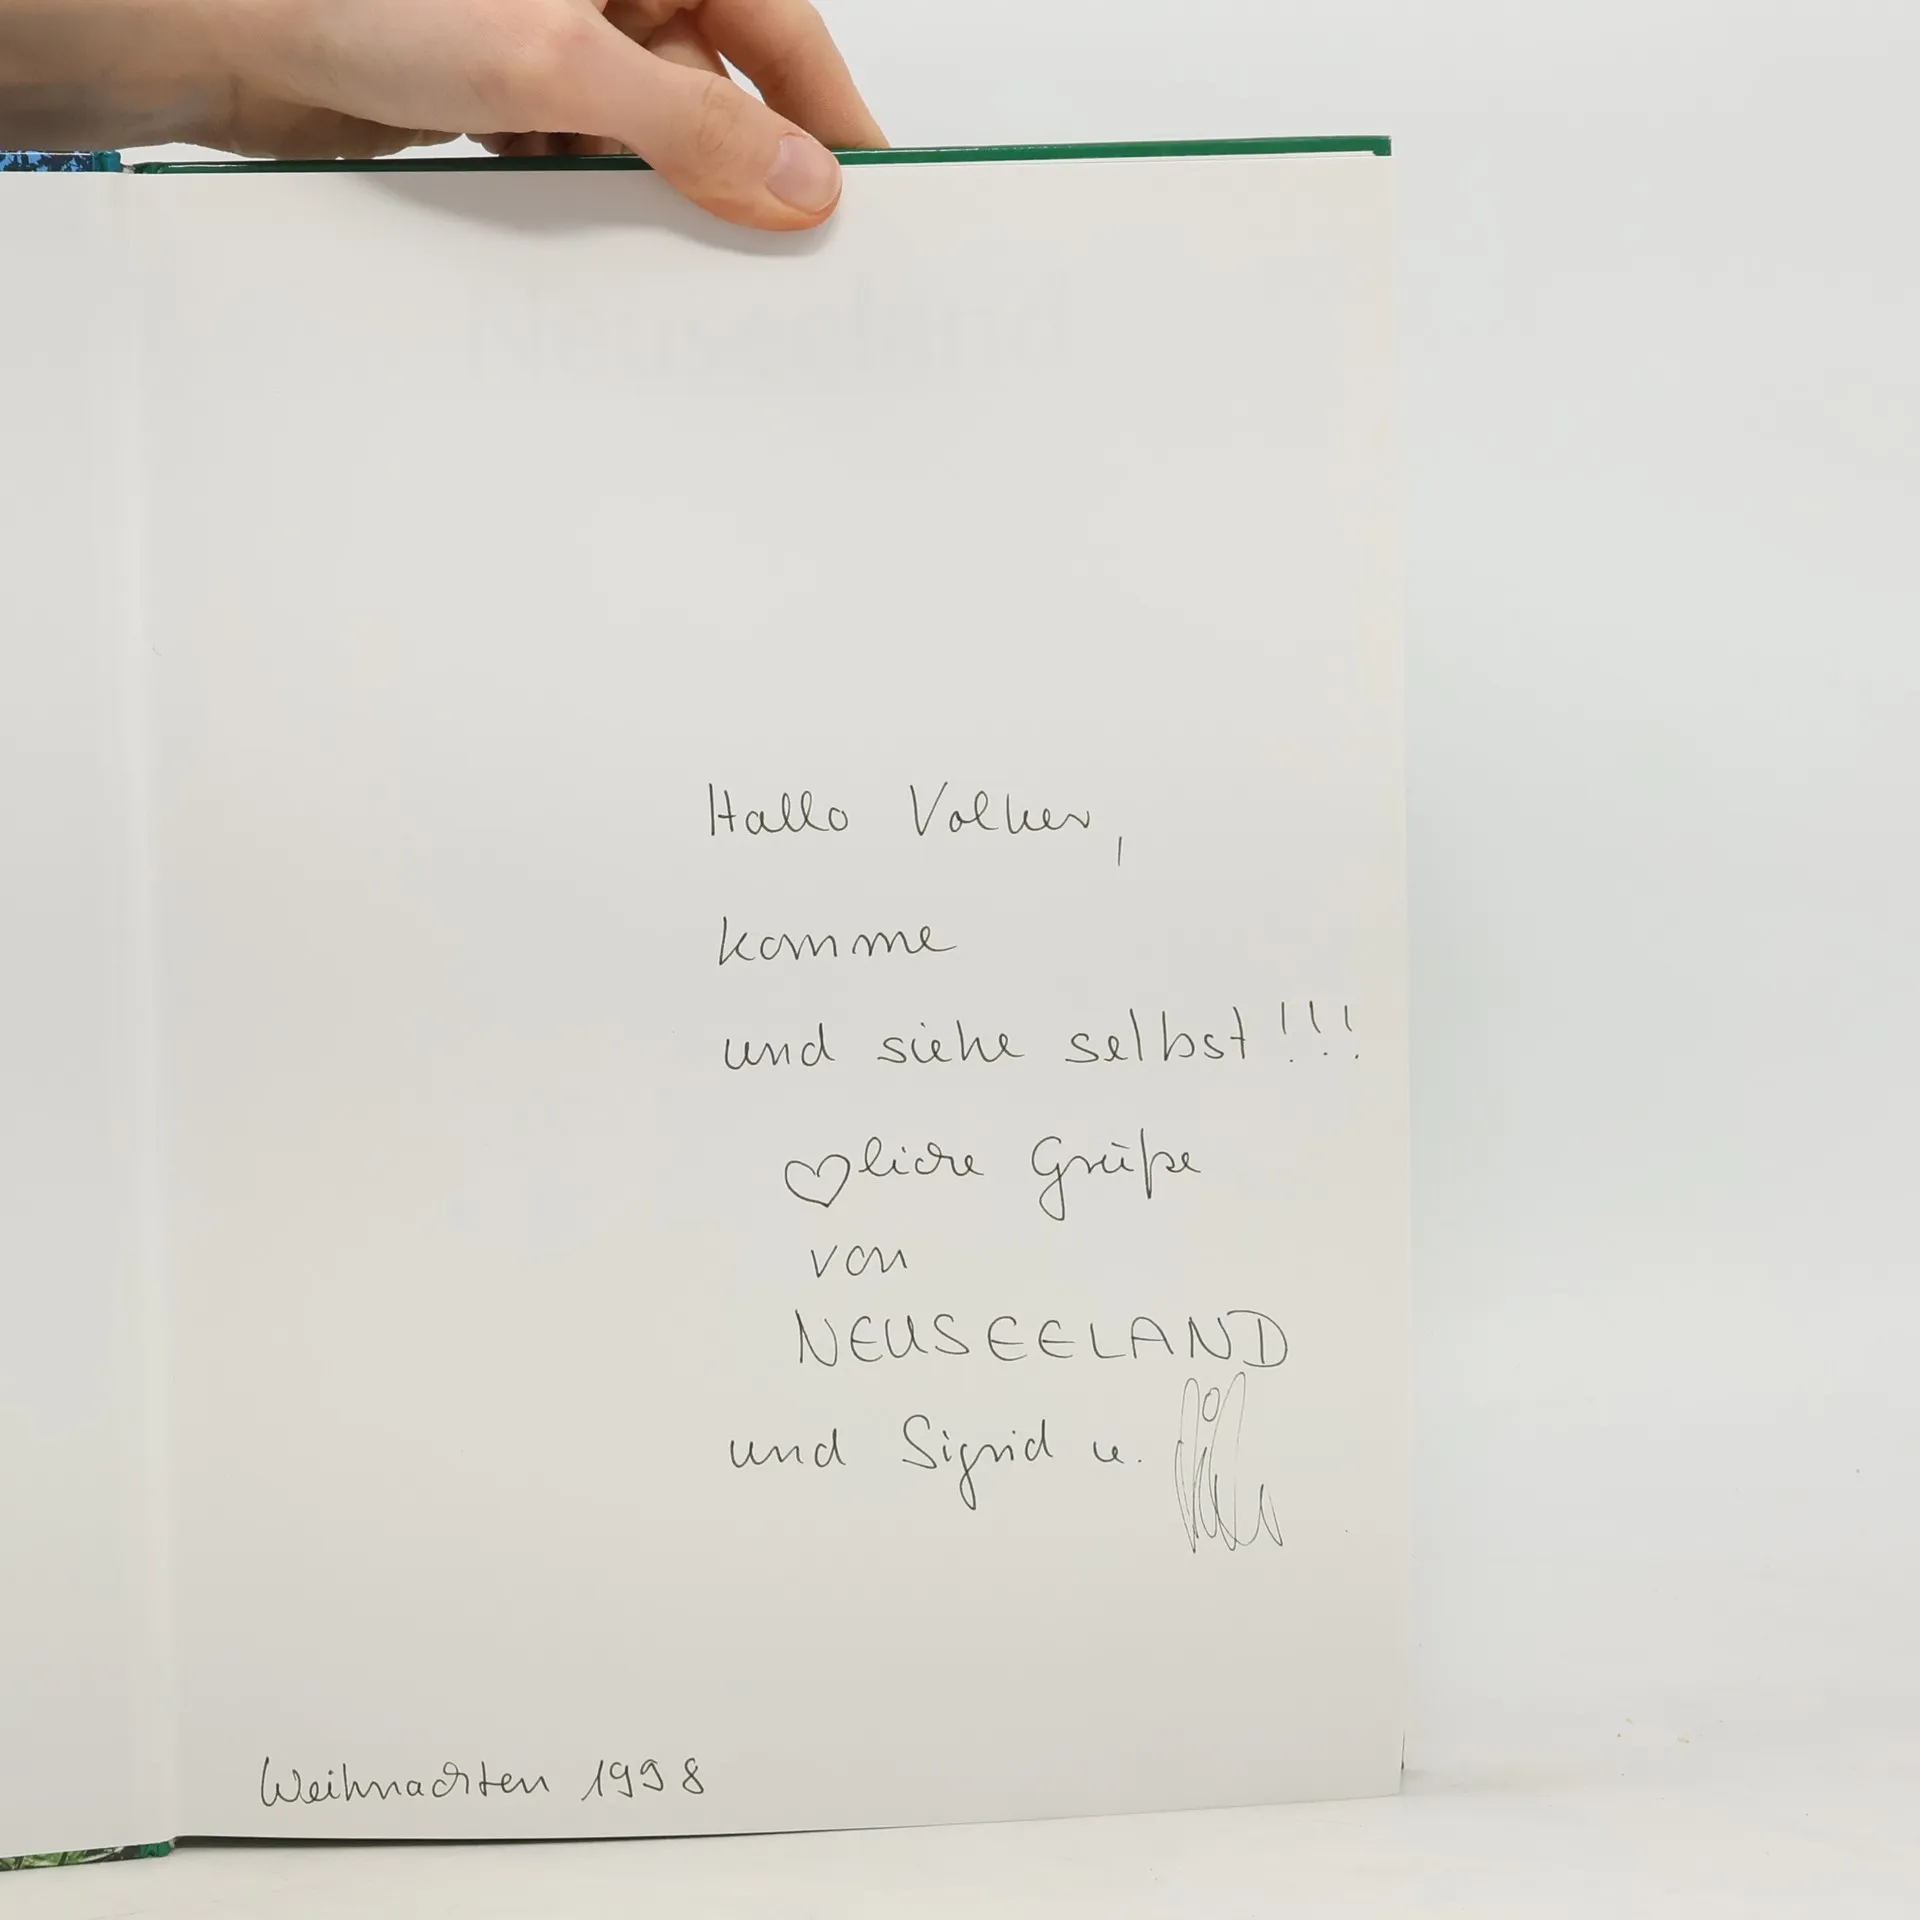 Hallo Volker,
komme
und siehe selbst!!!
♡liche Grüße
von
NEUSEELAND
und Sigrid u.
Weihnachten 1998